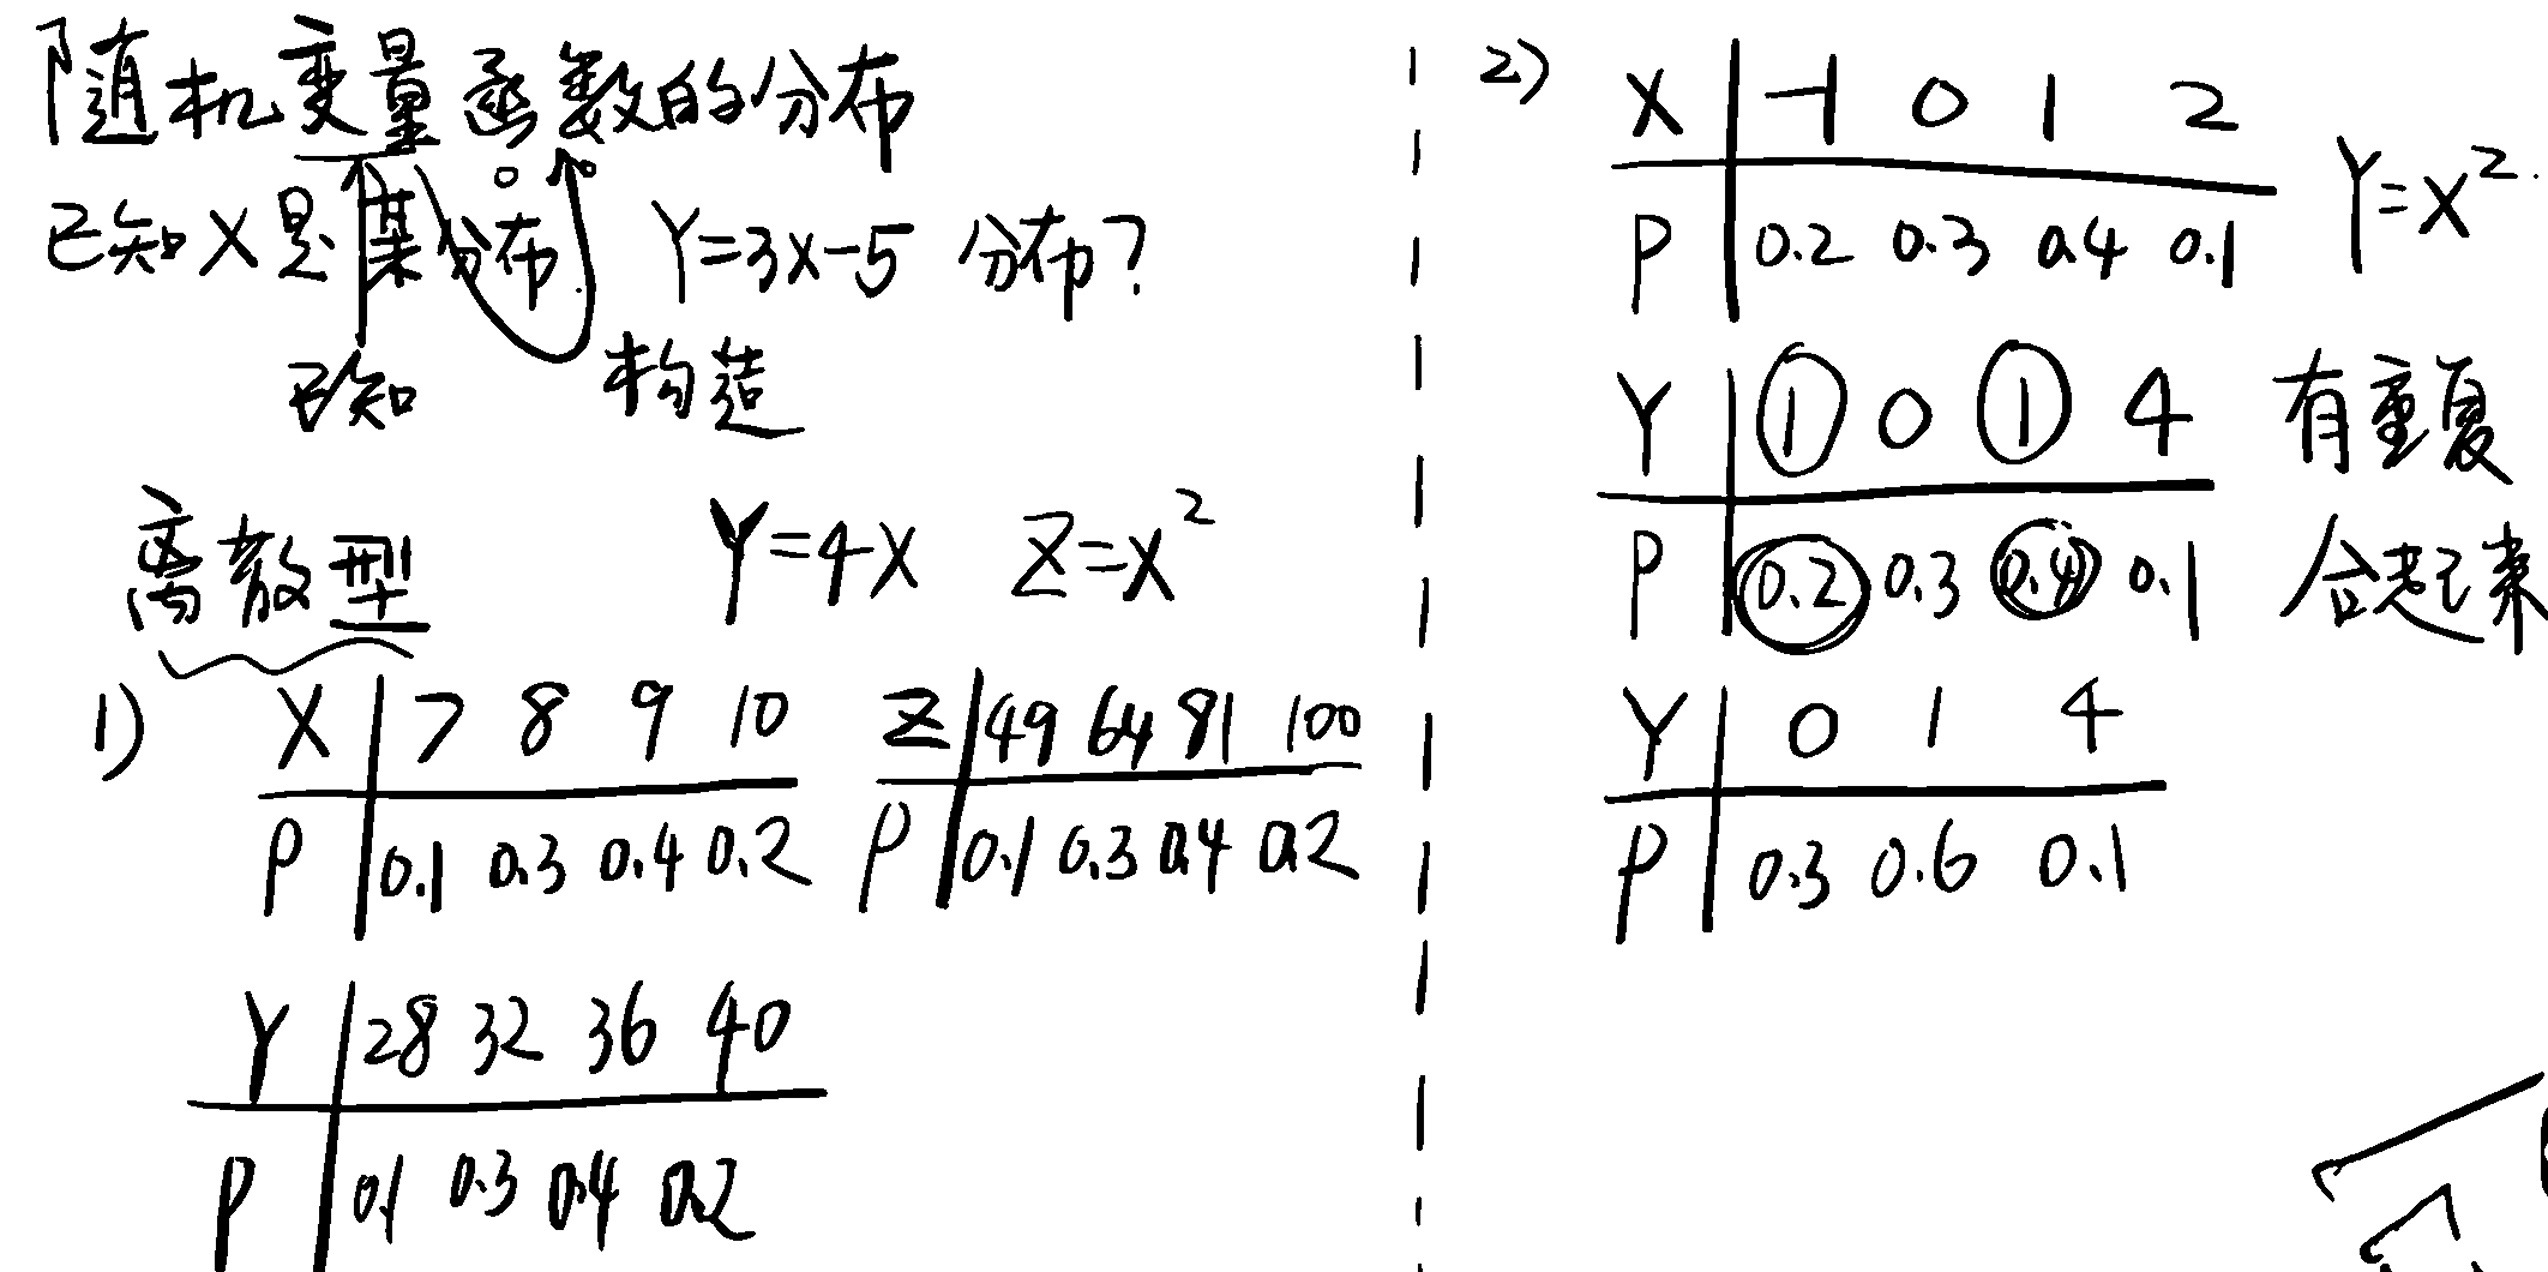 随机变量函数的分布
已知X是某分布. Y=3X-5 分布?
已知 构造
离散型 Y=4X Z=X²
1)
X 7 8 9 10
P 0.1 0.3 0.4 0.2
Z 49 64 81 100
P 0.1 0.3 0.4 0.2
Y 28 32 36 40
P 0.1 0.3 0.4 0.2
2)
X -1 0 1 2
P 0.2 0.3 0.4 0.1
Y=X²
Y 1 0 1 4 有重复
P 0.2 0.3 0.4 0.1 合起来
Y 0 1 4
P 0.3 0.6 0.1